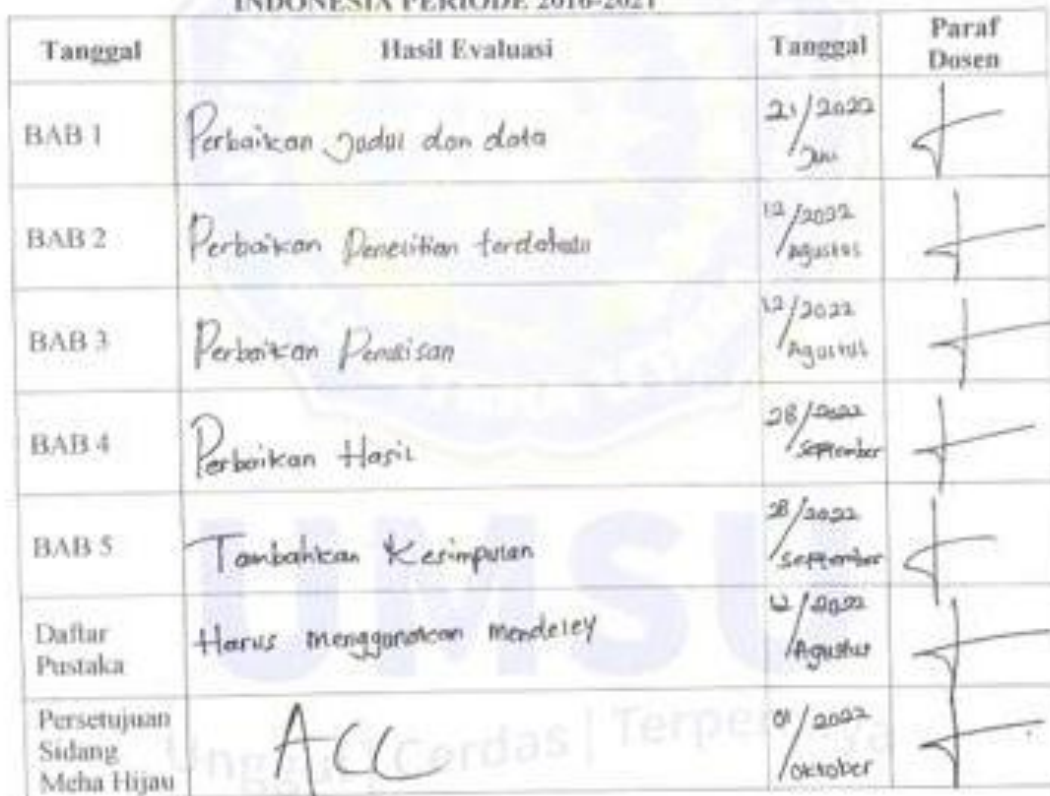 INDONESIA PERIODE 2016-2021
Tanggal Hasil Evaluasi Tanggal Paraf Dosen
BAB 1 Perbaikan Judul dan data 21/2022 Juni
BAB 2 Perbaikan Penelitian terdahulu 12/2022 Agustus
BAB 3 Perbaikan Penulisan 12/2022 Agustus
BAB 4 Perbaikan Hasil 28/2022 September
BAB 5 Tambahkan Kesimpulan 28/2022 September
Daftar Pustaka Harus menggunakan mendeley 12/2022 Agustus
Persetujuan Sidang Meha Hijau ACC 01/2022 Oktober
UMSU
Cerdas |